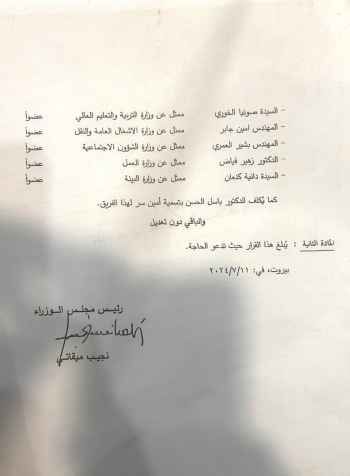 - السيدة صونيا الخوري ممثل عن وزارة التربية والتعليم العالي عضواً
- المهندس امين جابر ممثل عن وزارة الاشغال العامة والنقل عضواً
- المهندس بشير العمري ممثل عن وزارة الشؤون الاجتماعية عضواً
- الدكتور زهير فياض ممثل عن وزارة العمل عضواً
- السيدة دانية كنعان ممثل عن وزارة البيئة عضواً
كما يُكلف الدكتور باسل الحسن بتسمية أمين سر لهذا الفريق.
والباقي دون تعديل
المادة الثانية : يُبلغ هذا القرار حيث تدعو الحاجة.
بيروت، في: ٢٠٢٤/٧/١١
رئيس مجلس الوزراء
نجيب ميقاتي